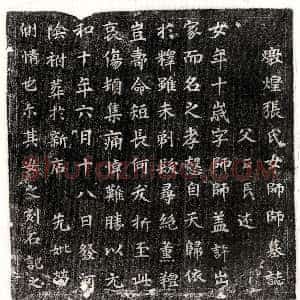 燉煌張氏女師師墓誌
父 民 述
女年十歲字師師蓋許出
家而名之孝愛自天歸依
於釋雖未剃 尋絕葷羶
豈壽命短長何 折至此
哀傷 集痛 難勝以元
和十年六月十八日 河
陰祔葬於新店 先妣
側情也亦其 之刻石記之